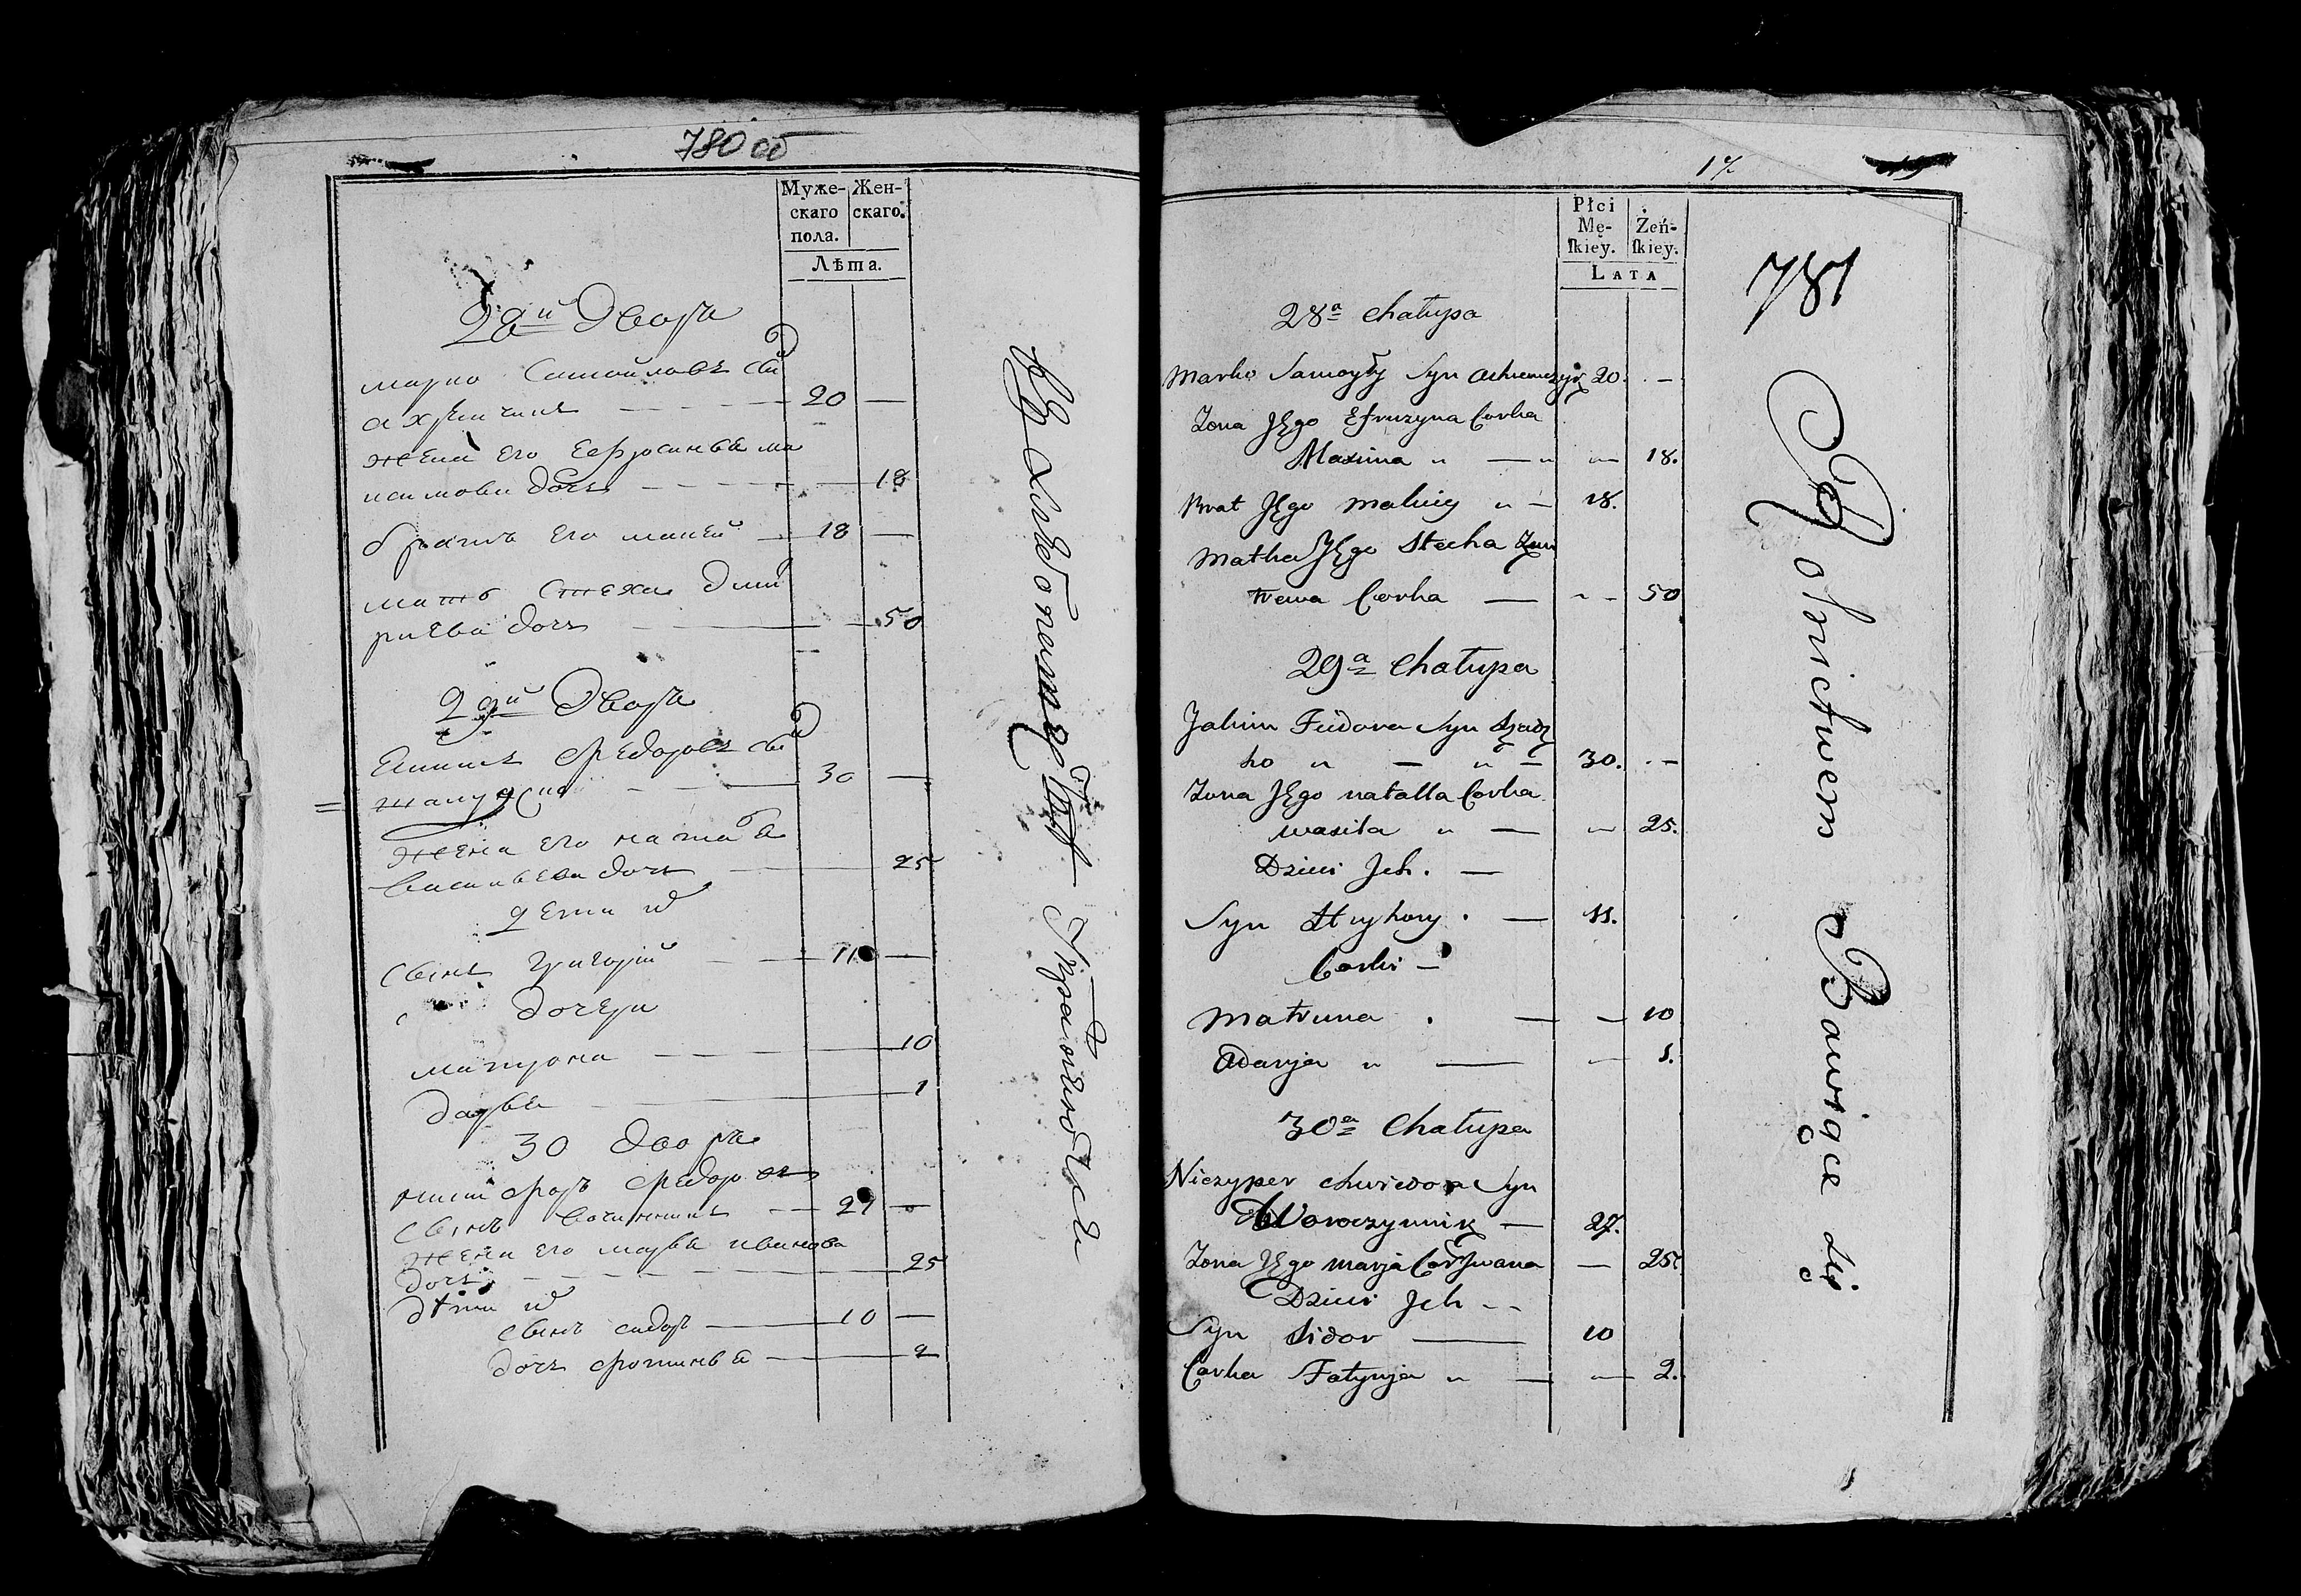 780 об
Муже-
скаго
пола.
Жен-
скаго.
Лѣта.
28й Дворъ
марко Самойловъ сы
ахремчикъ 20 —
жена его Ефросинья ма
ксимова дочь — 18
братъ его макей — 18 —
мать Стеха Дми
риева дочь — 50
29й Дворъ
Якимъ Федоровъ сы
30 —
жена его наталя
васильева дочь — 25
дети их
сынъ григорий — 11 —
дочери
матрона — 10
дарья — 1
30 дворъ
никифоръ Федоровъ
сынъ — 27 —
жена его марья иванова
дочь — 25
дѣти их
сынъ сидоръ — 10 —
дочь фотинья — 2
въ хлебопашествѣ упражняются
17
Płci
Mę-
ſkiey.
Żeń-
ſkiey.
LATA
781
28a Chałupa
Marko Samoyły Syn Achremczyk 20. —
Zona Jego Efruzyna Corka
Maxima „ — „ — 18.
Brat Jego Makiey „ — 18.
Matka Jego Stecha Zmi
trewa Corka — - - 50
29a Chałupa
Jakim Fiedora Syn Dziadz
ko „ — „ — 30. - —
Zona Jego natalla Corka
wasila „ — „ 25.
Dzieci Jch. —
Syn Hryhory . — 11.
Corki —
Matruna . — — 10
Adarja „ — — 1.
30a Chałupa
Niczyper Chwiedora Syn
Woroczynnik — 27.
Zona Jego marja Cor Jwana — 25
Dzieci Jch - -
Syn Sidor — 10
Corka Fatynja „ — — 2.
Rolnictwem Bawiące się